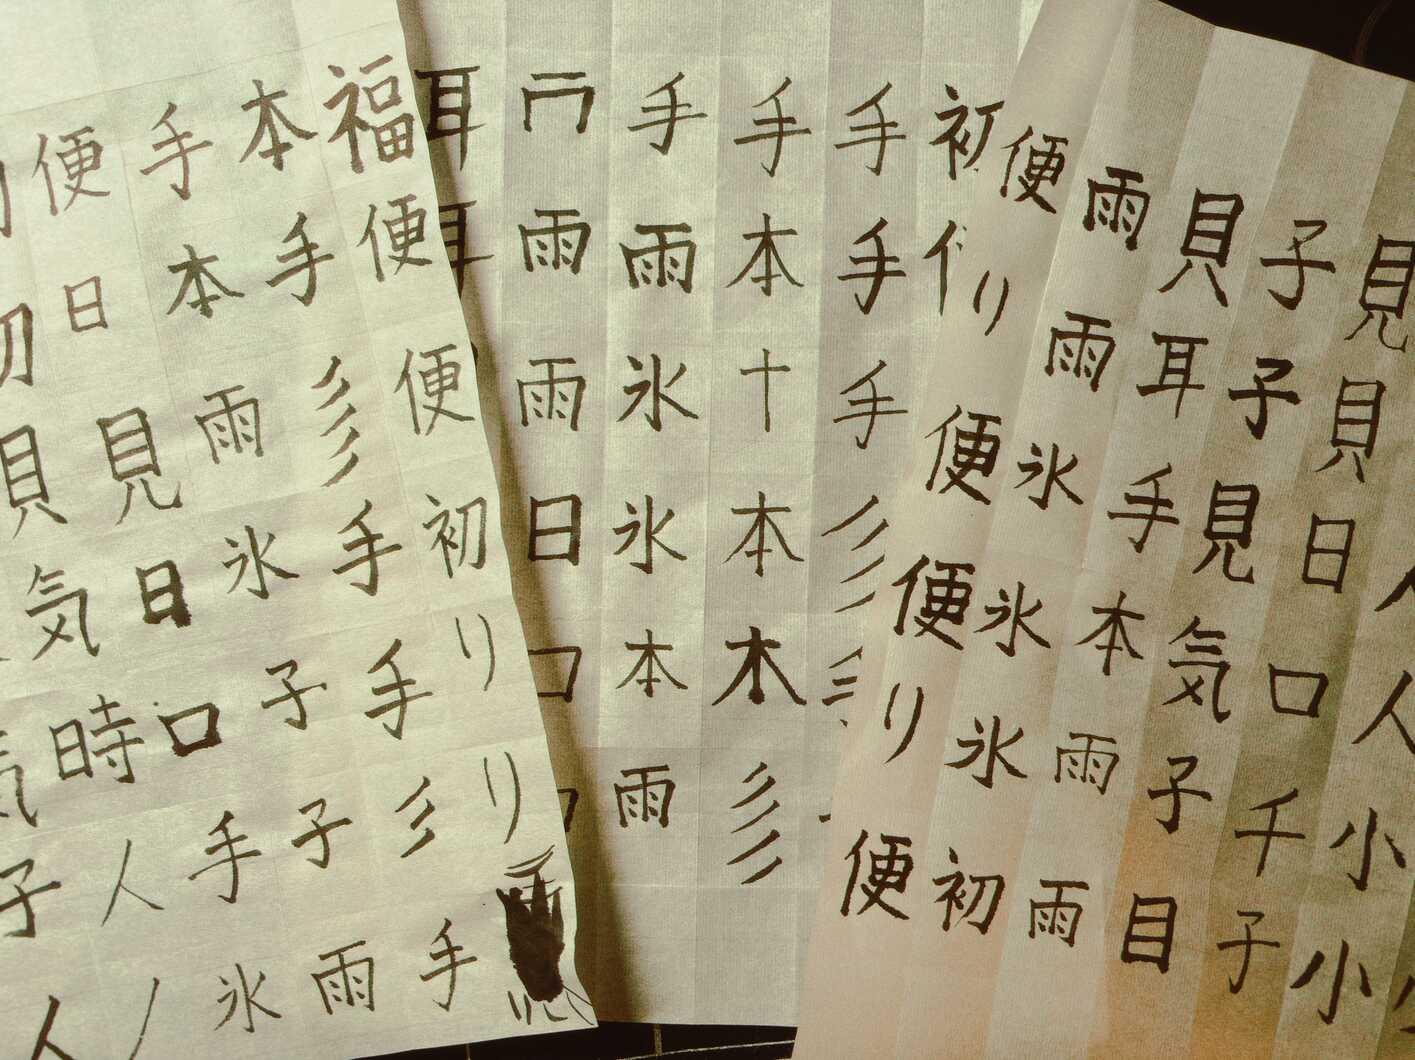 人人小小
見貝日口千子
子子見気子目
貝耳手本雨雨
雨雨氷氷氷初
便リ便便リ便
初
手手手彡
手本十本木彡
手雨氷氷本雨
雨雨日コ
耳耳
福便便初リリ
本手彡手手彡手
手本雨氷子子雨
便日見日口手氷
貝気時人ノ
気子人